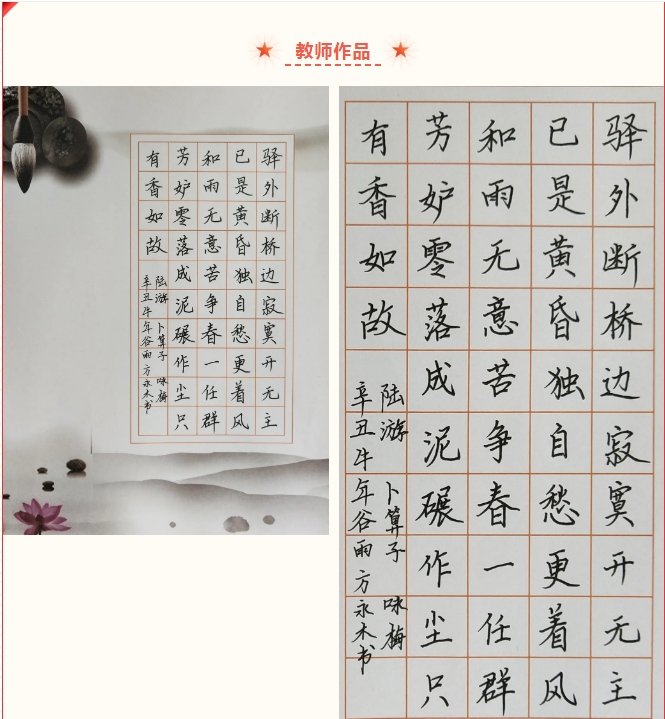 教师作品
驿外断桥边寂寞开无主
已是黄昏独自愁更着风
和雨无意苦争春一任群
芳妒零落成泥碾作尘只
有香如故
陆游 卜算子 咏梅
辛丑牛年谷雨方永木书
驿外断桥边寂寞开无主
已是黄昏独自愁更着风
和雨无意苦争春一任群
芳妒零落成泥碾作尘只
有香如故
陆游 卜算子 咏梅
辛丑牛年谷雨方永木书